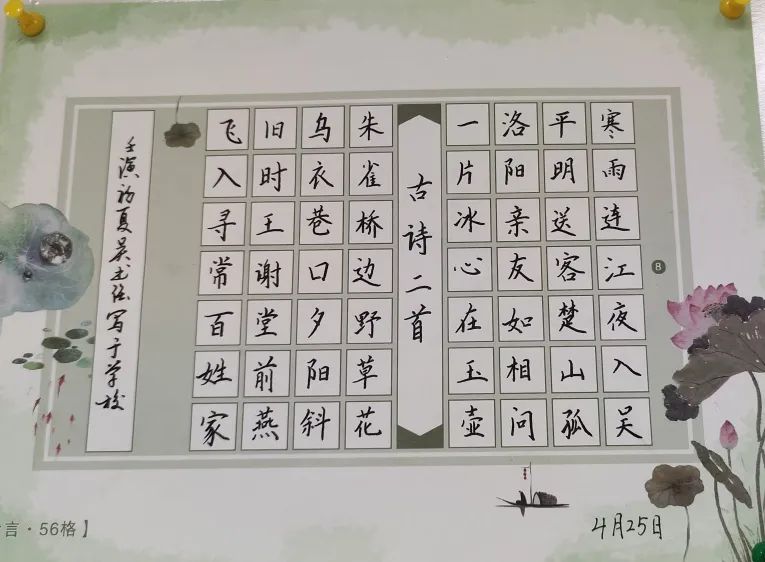 寒雨连江夜入吴
平明送客楚山孤
洛阳亲友如相问
一片冰心在玉壶
古诗二首
朱雀桥边野草花
乌衣巷口夕阳斜
旧时王谢堂前燕
飞入寻常百姓家
初夏吴
写于学校
8
言·56格】
4月25日